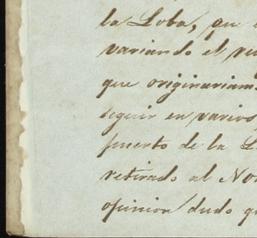 la Loba, pu
variando el
que originariam
seguir en varios
puerto de la L
retirado al No
opinion dudo q